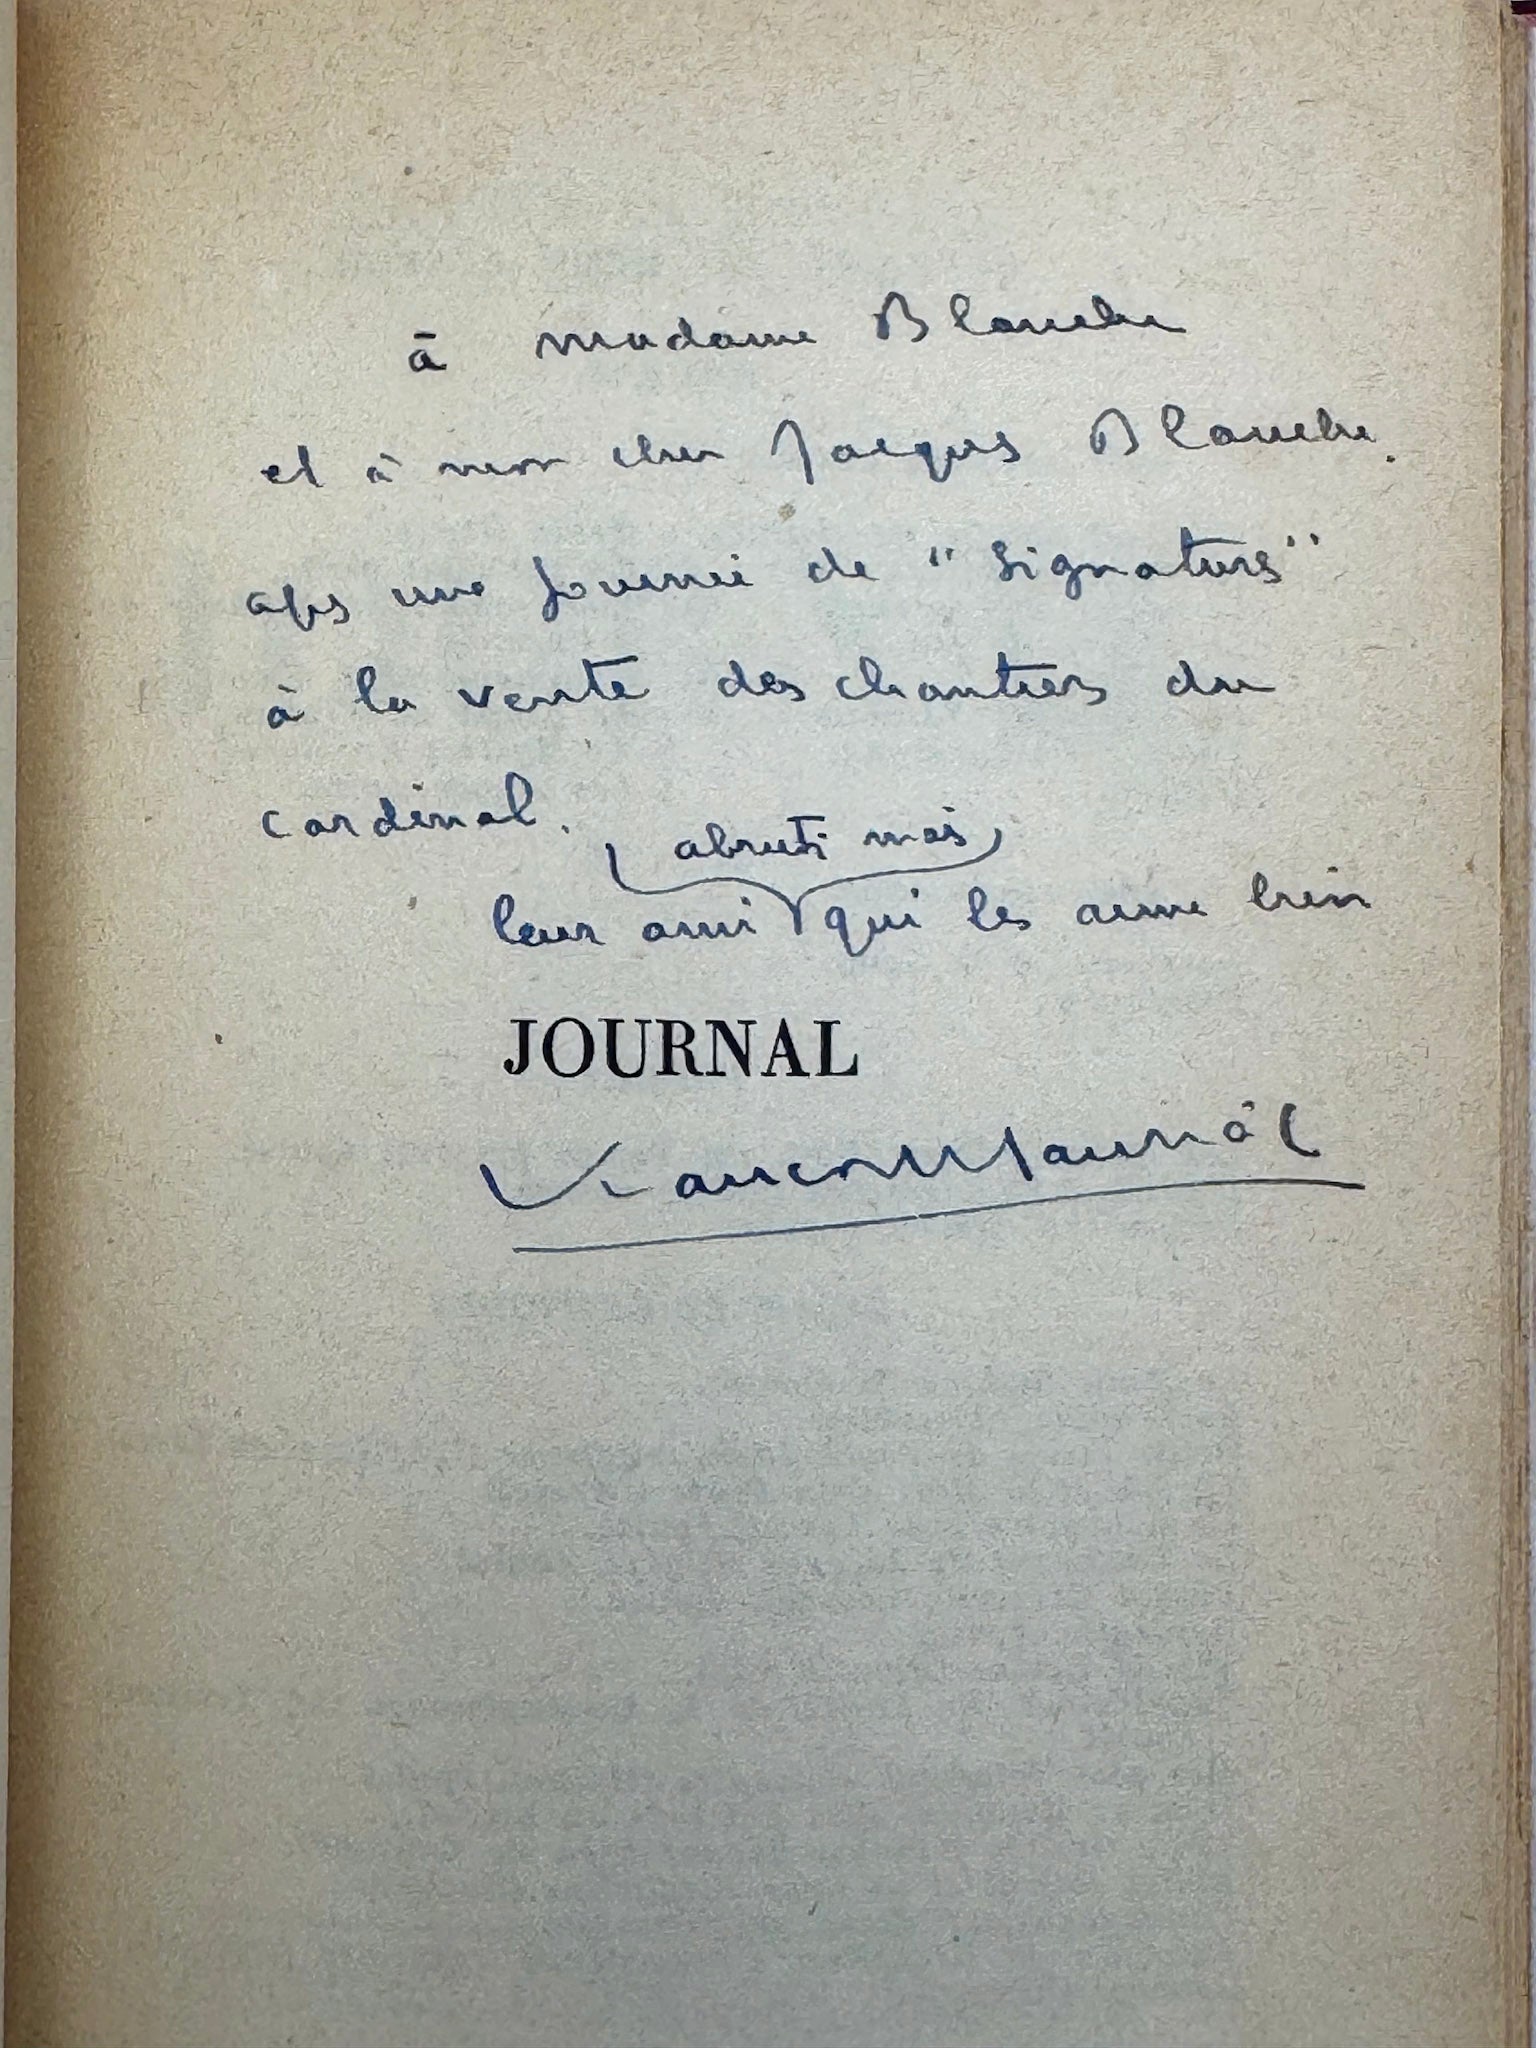 à madame Blanche
et à mon cher Jacques Blanche.
après une journée de "signatures"
à la vente des chantiers du
cardinal.
abruti mais
leur ami qui les aime bien
JOURNAL
François Mauriac